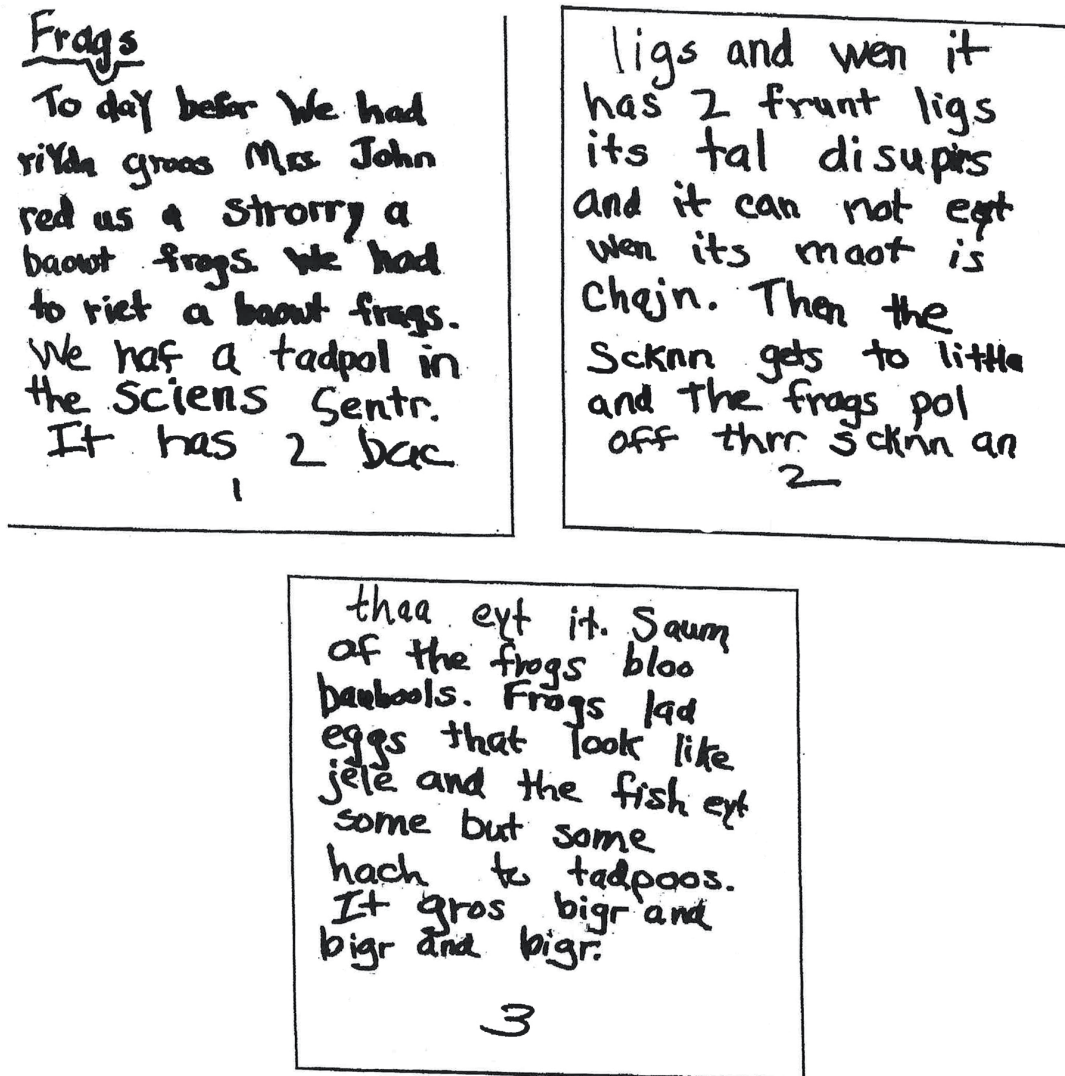 Frags
To day befor We had
riYdn groos Mrs. John
red us a strorry a
baowt frogs. We had
to riet a baowt frags.
We haf a tadpol in
the sciens Sentr.
It has 2 bac
1
ligs and wen it
has 2 frunt ligs
its tal disupirs
and it can not eyt
wen its maot is
Chajn. Then the
Scknn gets to little
and The frogs pol
off thrr scknn an
2
thaa eyt it. Saum
af the frogs bloo
baubools. Frogs lad
eggs that look like
jele and the fish eyt
some but some
hach to tadpoos.
It gros bigr and
bigr and bigr.
3